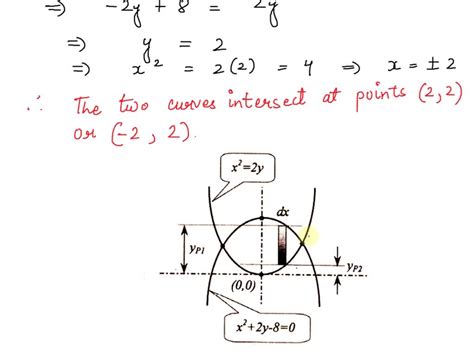 ⇒ -2y + 8 = 2y
⇒ y = 2
⇒ x² = 2(2) = 4 ⇒ x = ± 2
∴ The two curves intersect at points (2,2)
or (-2, 2).
x²=2y
dx
yP1
yP2
(0,0)
x²+2y-8=0